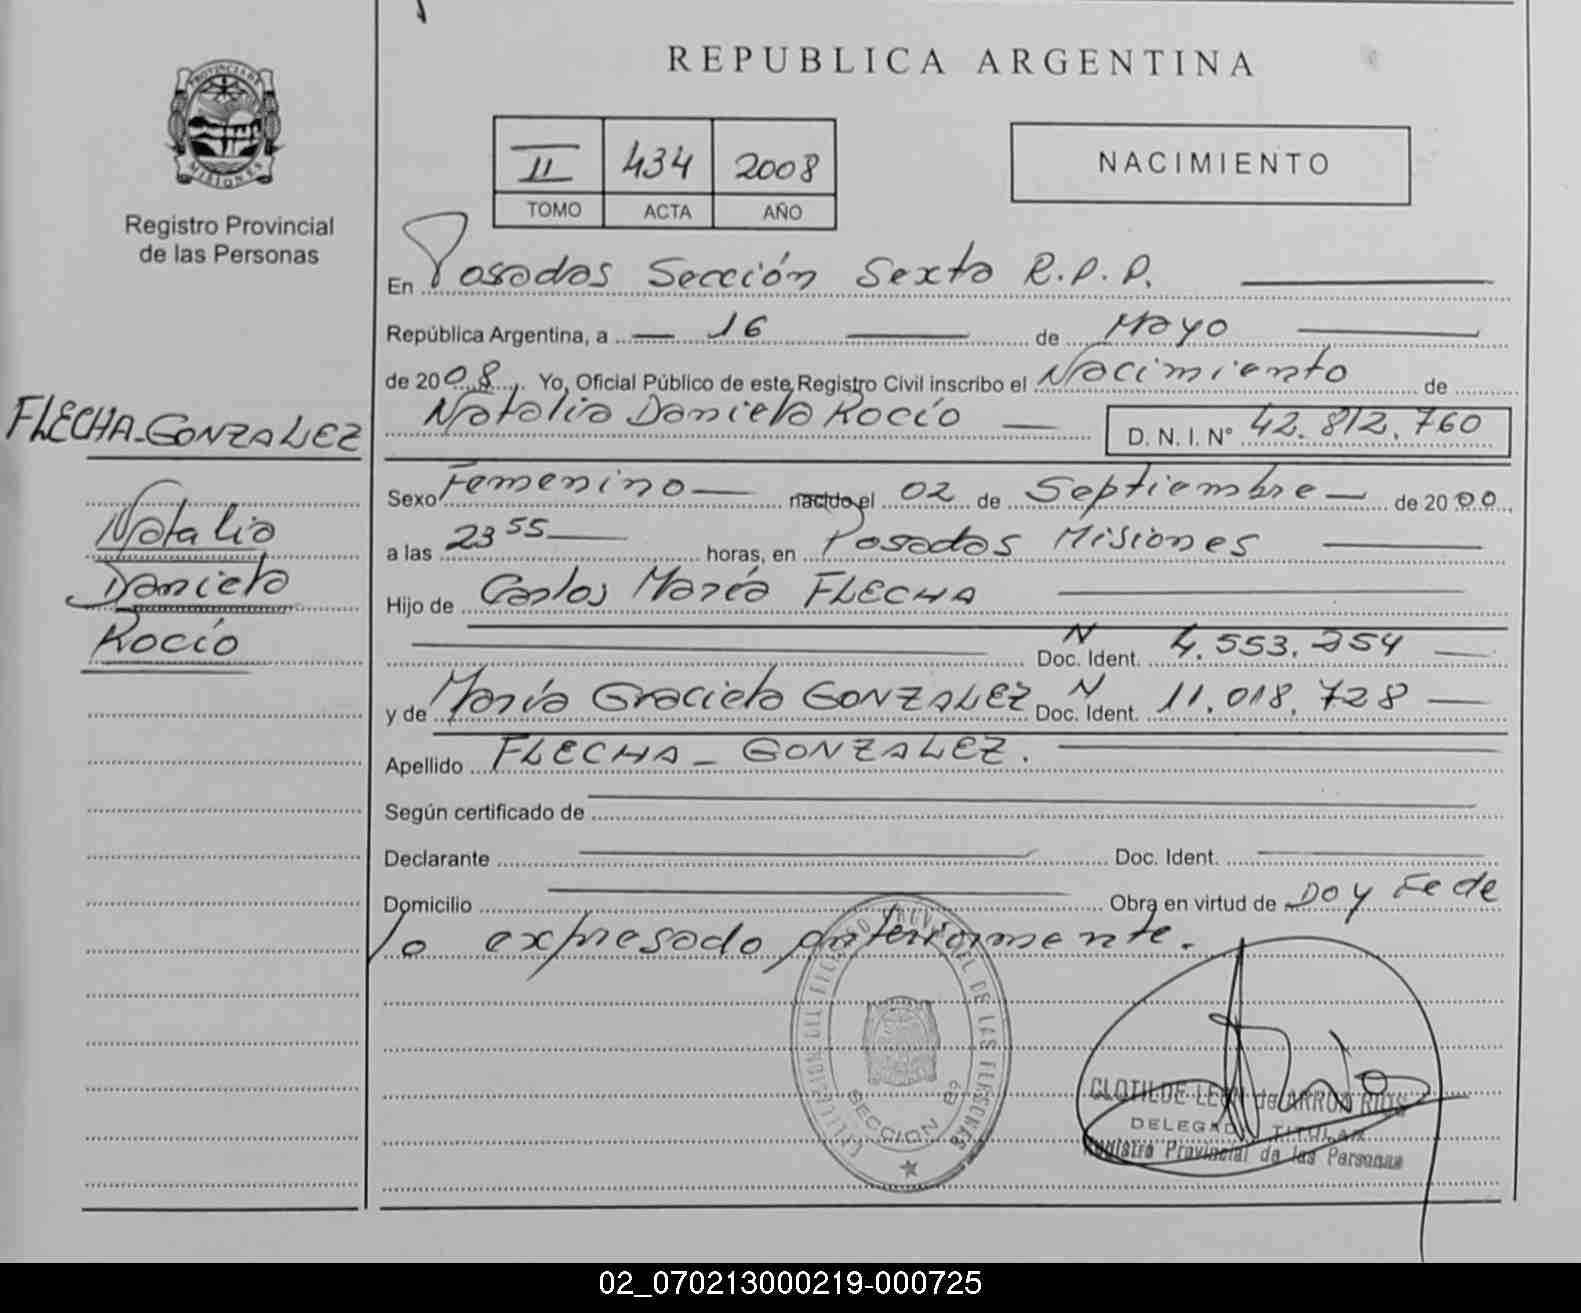 REPUBLICA ARGENTINA
PROVINCIA DE
MISIONES
Registro Provincial
de las Personas
II 434 2008
TOMO ACTA AÑO
NACIMIENTO
En Posadas Sección Sexta R.P.P.
República Argentina, a 16 de Mayo
de 2008. Yo, Oficial Público de este Registro Civil inscribo el Nacimiento de
Natalia Daniela Rocío D. N. I. N° 42.812.760
FLECHA-GONZALEZ
Natalia
Daniela
Rocío
Sexo Femenino nacido el 02 de Septiembre de 2000,
a las 23 55 horas, en Posadas Misiones
Hijo de Carlos María FLECHA
N
Doc. Ident. 4.553.254
y de María Graciela GONZALEZ N Doc. Ident. 11.018.728
Apellido FLECHA - GONZALEZ.
Según certificado de
Declarante Doc. Ident.
Domicilio Obra en virtud de Doy Fe de
lo expresado anteriormente.
DE LAS PERSONAS
SECCION 6ª
CLOTILDE LEON de ARROA RIOS
DELEGADA TITULAR
Registro Provincial de las Personas
02_070213000219-000725